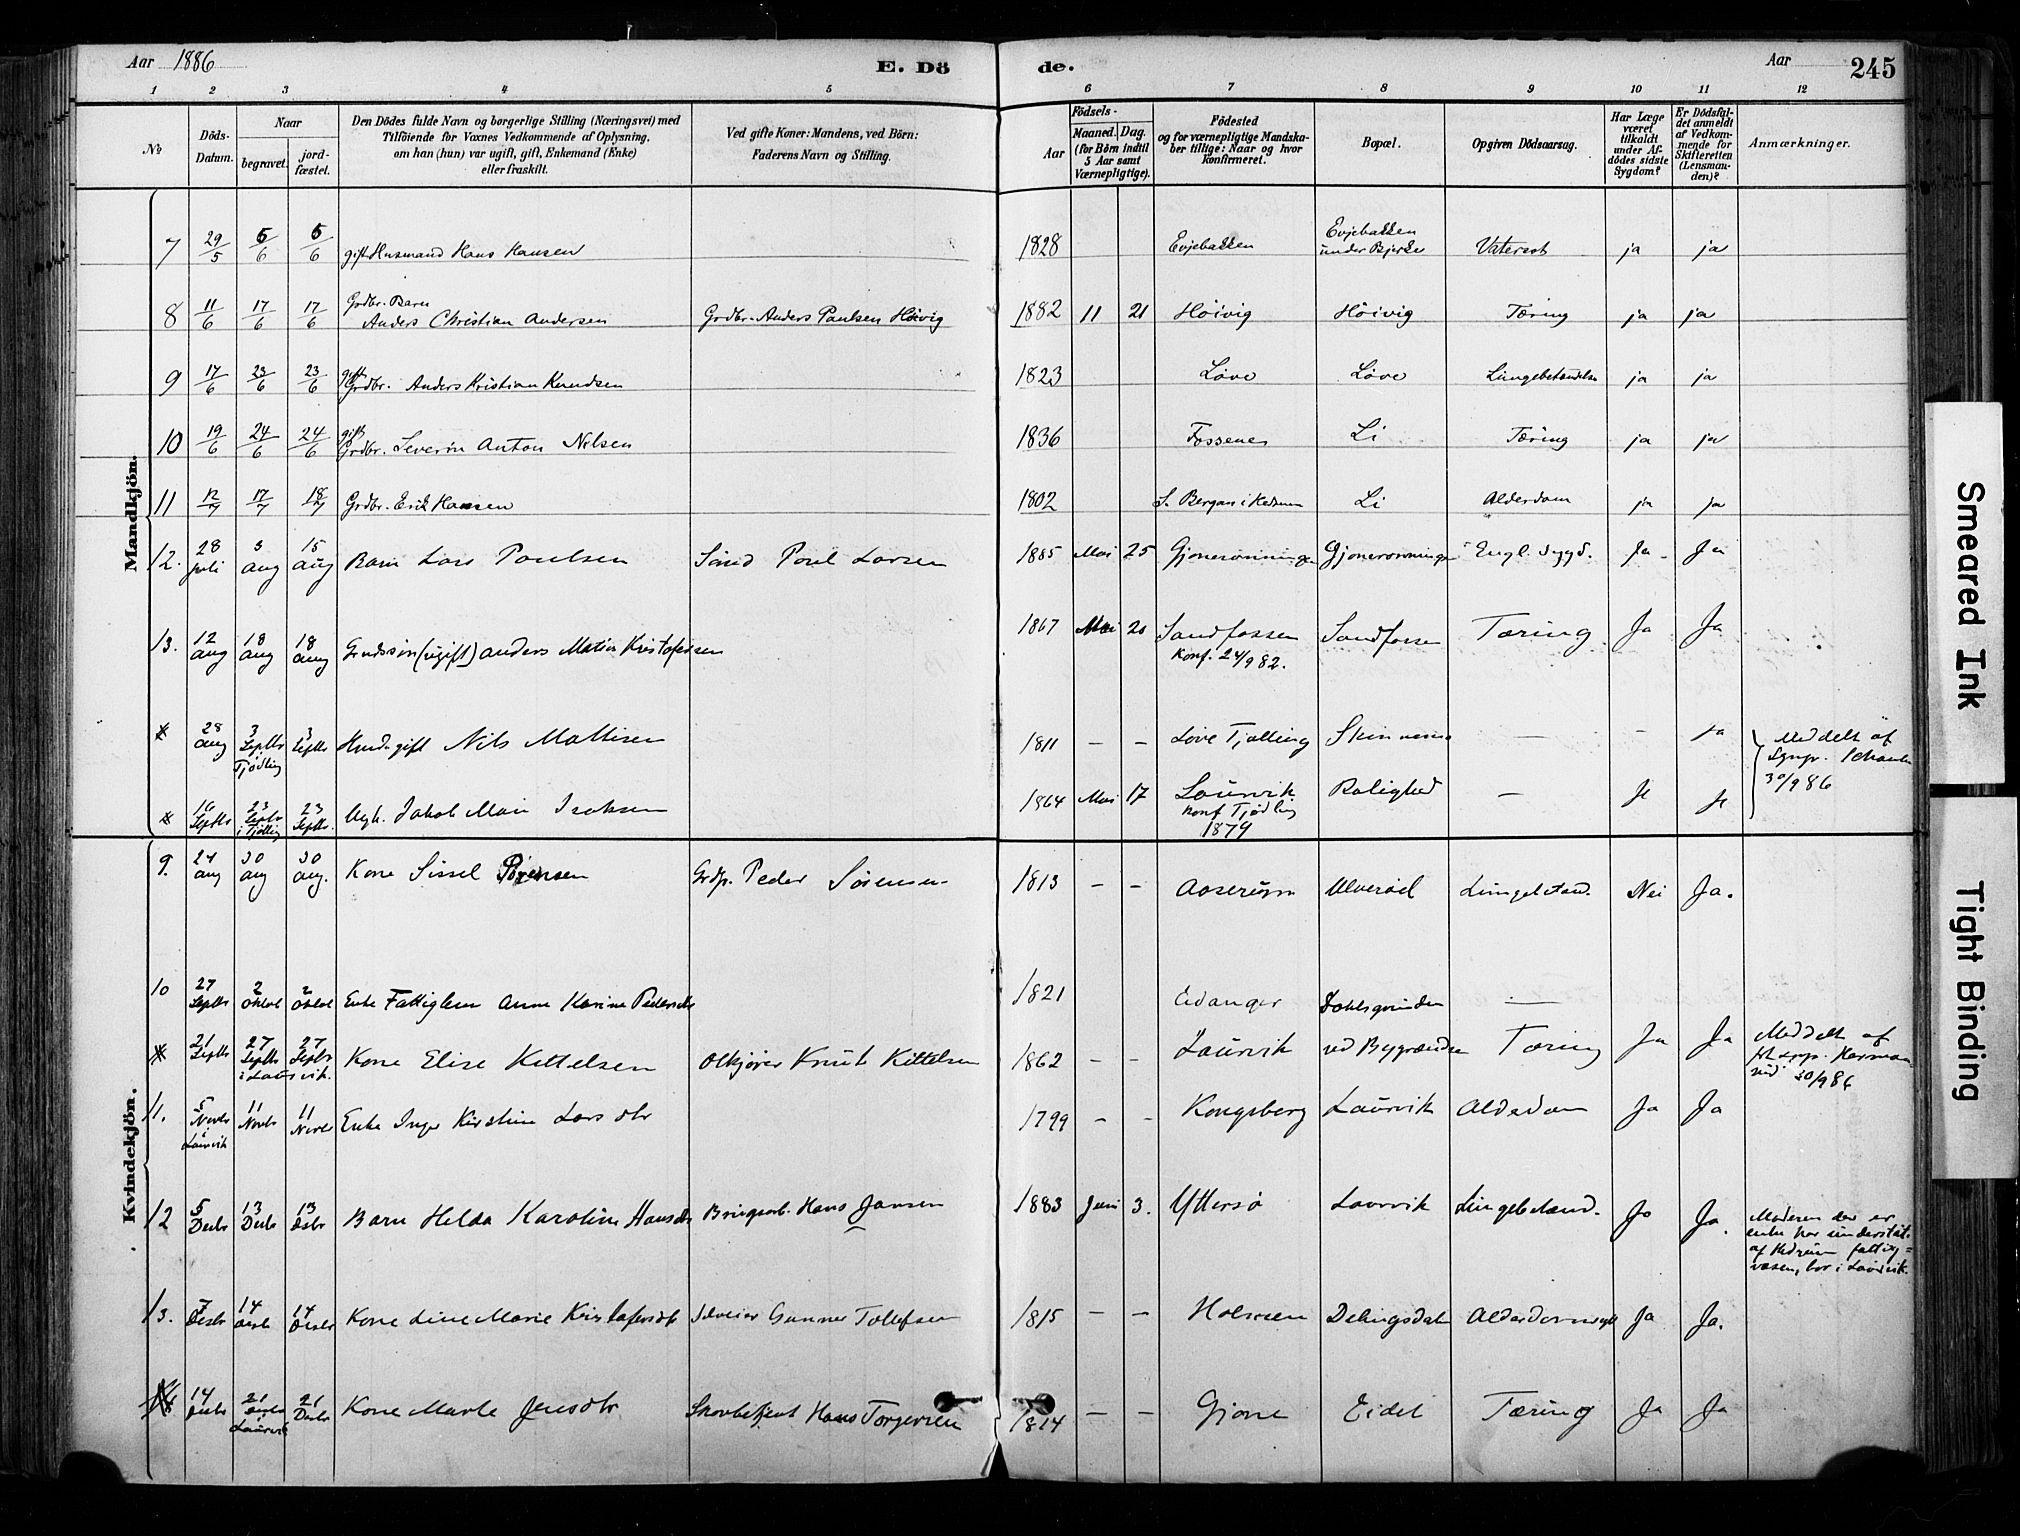 Aar 1886
E. Dö
de.
Aar
245
1 2 3 4 5 6 7 8 9 10 11 12
No
Döds-Datum.
Naar
begravet.
jord-fæstet.
Den Dödes fulde Navn og borgerlige Stilling (Næringsvei) med
Tilföiende for Voxnes Vedkommende af Oplysning,
om han (hun) var ugift, gift, Enkemand (Enke)
eller fraskilt.
Ved gifte Koner: Mandens, ved Börn:
Faderens Navn og Stilling.
Födsels-
Aar
Maaned. Dag.
(for Börn indtil
5 Aar samt
Værnepligtige).
Födested
og for værnepligtige Mandska-
ber tillige: Naar og hvor
konfirmeret.
Bopæl.
Opgiven Dödsaarsag.
Har Læge
været
tilkaldt
under Af-
dödes sidste
Sygdom?
Er Dödsfal-
det anmeldt
af Vedkom-
mende for
Skifteretten
(Lensman-
den)?
Anmærkninger.
Mandkjön.
7 29/5 5/6 5/6 gift Husmand Hans Hansen 1828 Evjebakken Evjebakken under Bjerke Vatersot ja ja
8 11/6 17/6 17/6 Grdbr. Barn Anders Christian Andersen Grdbr. Anders Paulsen Höivig 1882 11 21 Höivig Höivig Tæring ja ja
9 17/6 23/6 23/6 gift Grdbr. Anders Kristian Knudsen 1823 Löve Löve Lungebetændelse ja ja
10 19/6 24/6 24/6 gift Grdbr. Severin Anton Nilsen 1836 Fossenes Li Tæring ja ja
11 12/7 17/7 18/7 Grdbr. Erik Hansen 1802 S. Bergan i Hedrum Li Alderdom ja ja
12. 28 juli 3 aug 15 aug Barn Lars Paulsen Poul Larsen 1885 Mai 25 Gjonerønningen Gjonerønningen Engl. Sygd. Ja Ja
13. 12 aug 18 aug 18 aug Grudssön (ugift) Anders Matias Kristofersen 1867 Mai 20 Sandfossen Konf. 24/9 82. Sandfossen Tæring Ja Ja
28 aug 3 Septbr Tjödling 3 Septbr gift Nils Mathisen 1811 – – Löve Tjölling – – ja Meddelt af
30/9 86
16 Septbr 23 Septbr i Tjölling 23 Septbr. Ugk. Jakob Mari Isaksen 1864 Mai 17 Laurvik konf Tjødling 1879 Rolighed – Ja Ja
Kvindekjön.
9. 24 aug 30 aug 30 aug. Kone Sissel Sörensen Grdp. Peder Sörensen 1813 – – Aaserum Ulveröd Lungebetænd. Nei Ja.
10 27 Septbr 2 Oktob 2 Oktob Enke Fattiglem Anne Karine Pedersdtr 1821 Eidanger –
21 Septbr 27 Septbr i Laurvik. 27 Septbr Kone Elise Kittelsen Knut Kittelsen 1862 – – Laurvik ved Bygrændsen Tæring Ja Ja Meddelt af
30/9 86
11. 5 Novbr Laurvik 11 Novbr 11 Novbr Enke Inger Kirstine Larsdtr 1799 – – Kongsberg Laurvik Alderdom Ja Ja
12 5 Decbr 13 Decbr 13 Decbr Barn Helda Karoline Hansdtr Hans Jansen 1883 Juni 3. Yttersö Laurvik Lungebetænd. Ja Ja.
Moderen der er
enke har understöt.
af Hedrum fattig=
væsen, bor i Laurvik.
13. 7 Decbr 14 Decbr 14 Decbr Kone Line Marie Kristofersdtr Selveier Gunner Tollefsen 1815 – – Holmen Delingsdal Alderdomssvgh Ja Ja.
14 Decbr 21 Decbr i Laurvik 21 Decbr Kone Marte Jensdtr Skovbetjent Hans Torgersen 1814 – – Gjone Eidet Tæring Ja Ja
Smeared Ink
Tight Binding